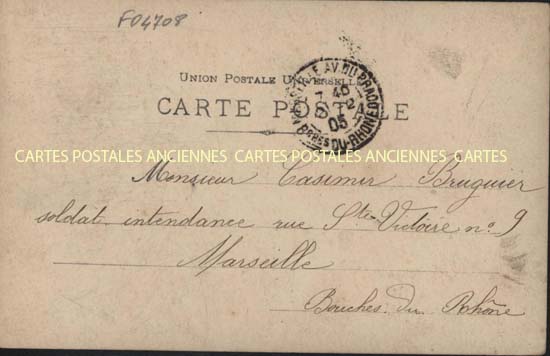 F04708
UNION POSTALE UNIVERSELLE
CARTE POSTALE
MARSEILLE AV. DU PRADO
7 40
2
05
BCHES DU-RHONE
CARTES POSTALES ANCIENNES CARTES POSTALES ANCIENNES
Monsieur Casimir Bruguier
soldat intendance rue Ste Victoire no 9
Marseille
Bouches du Rhône